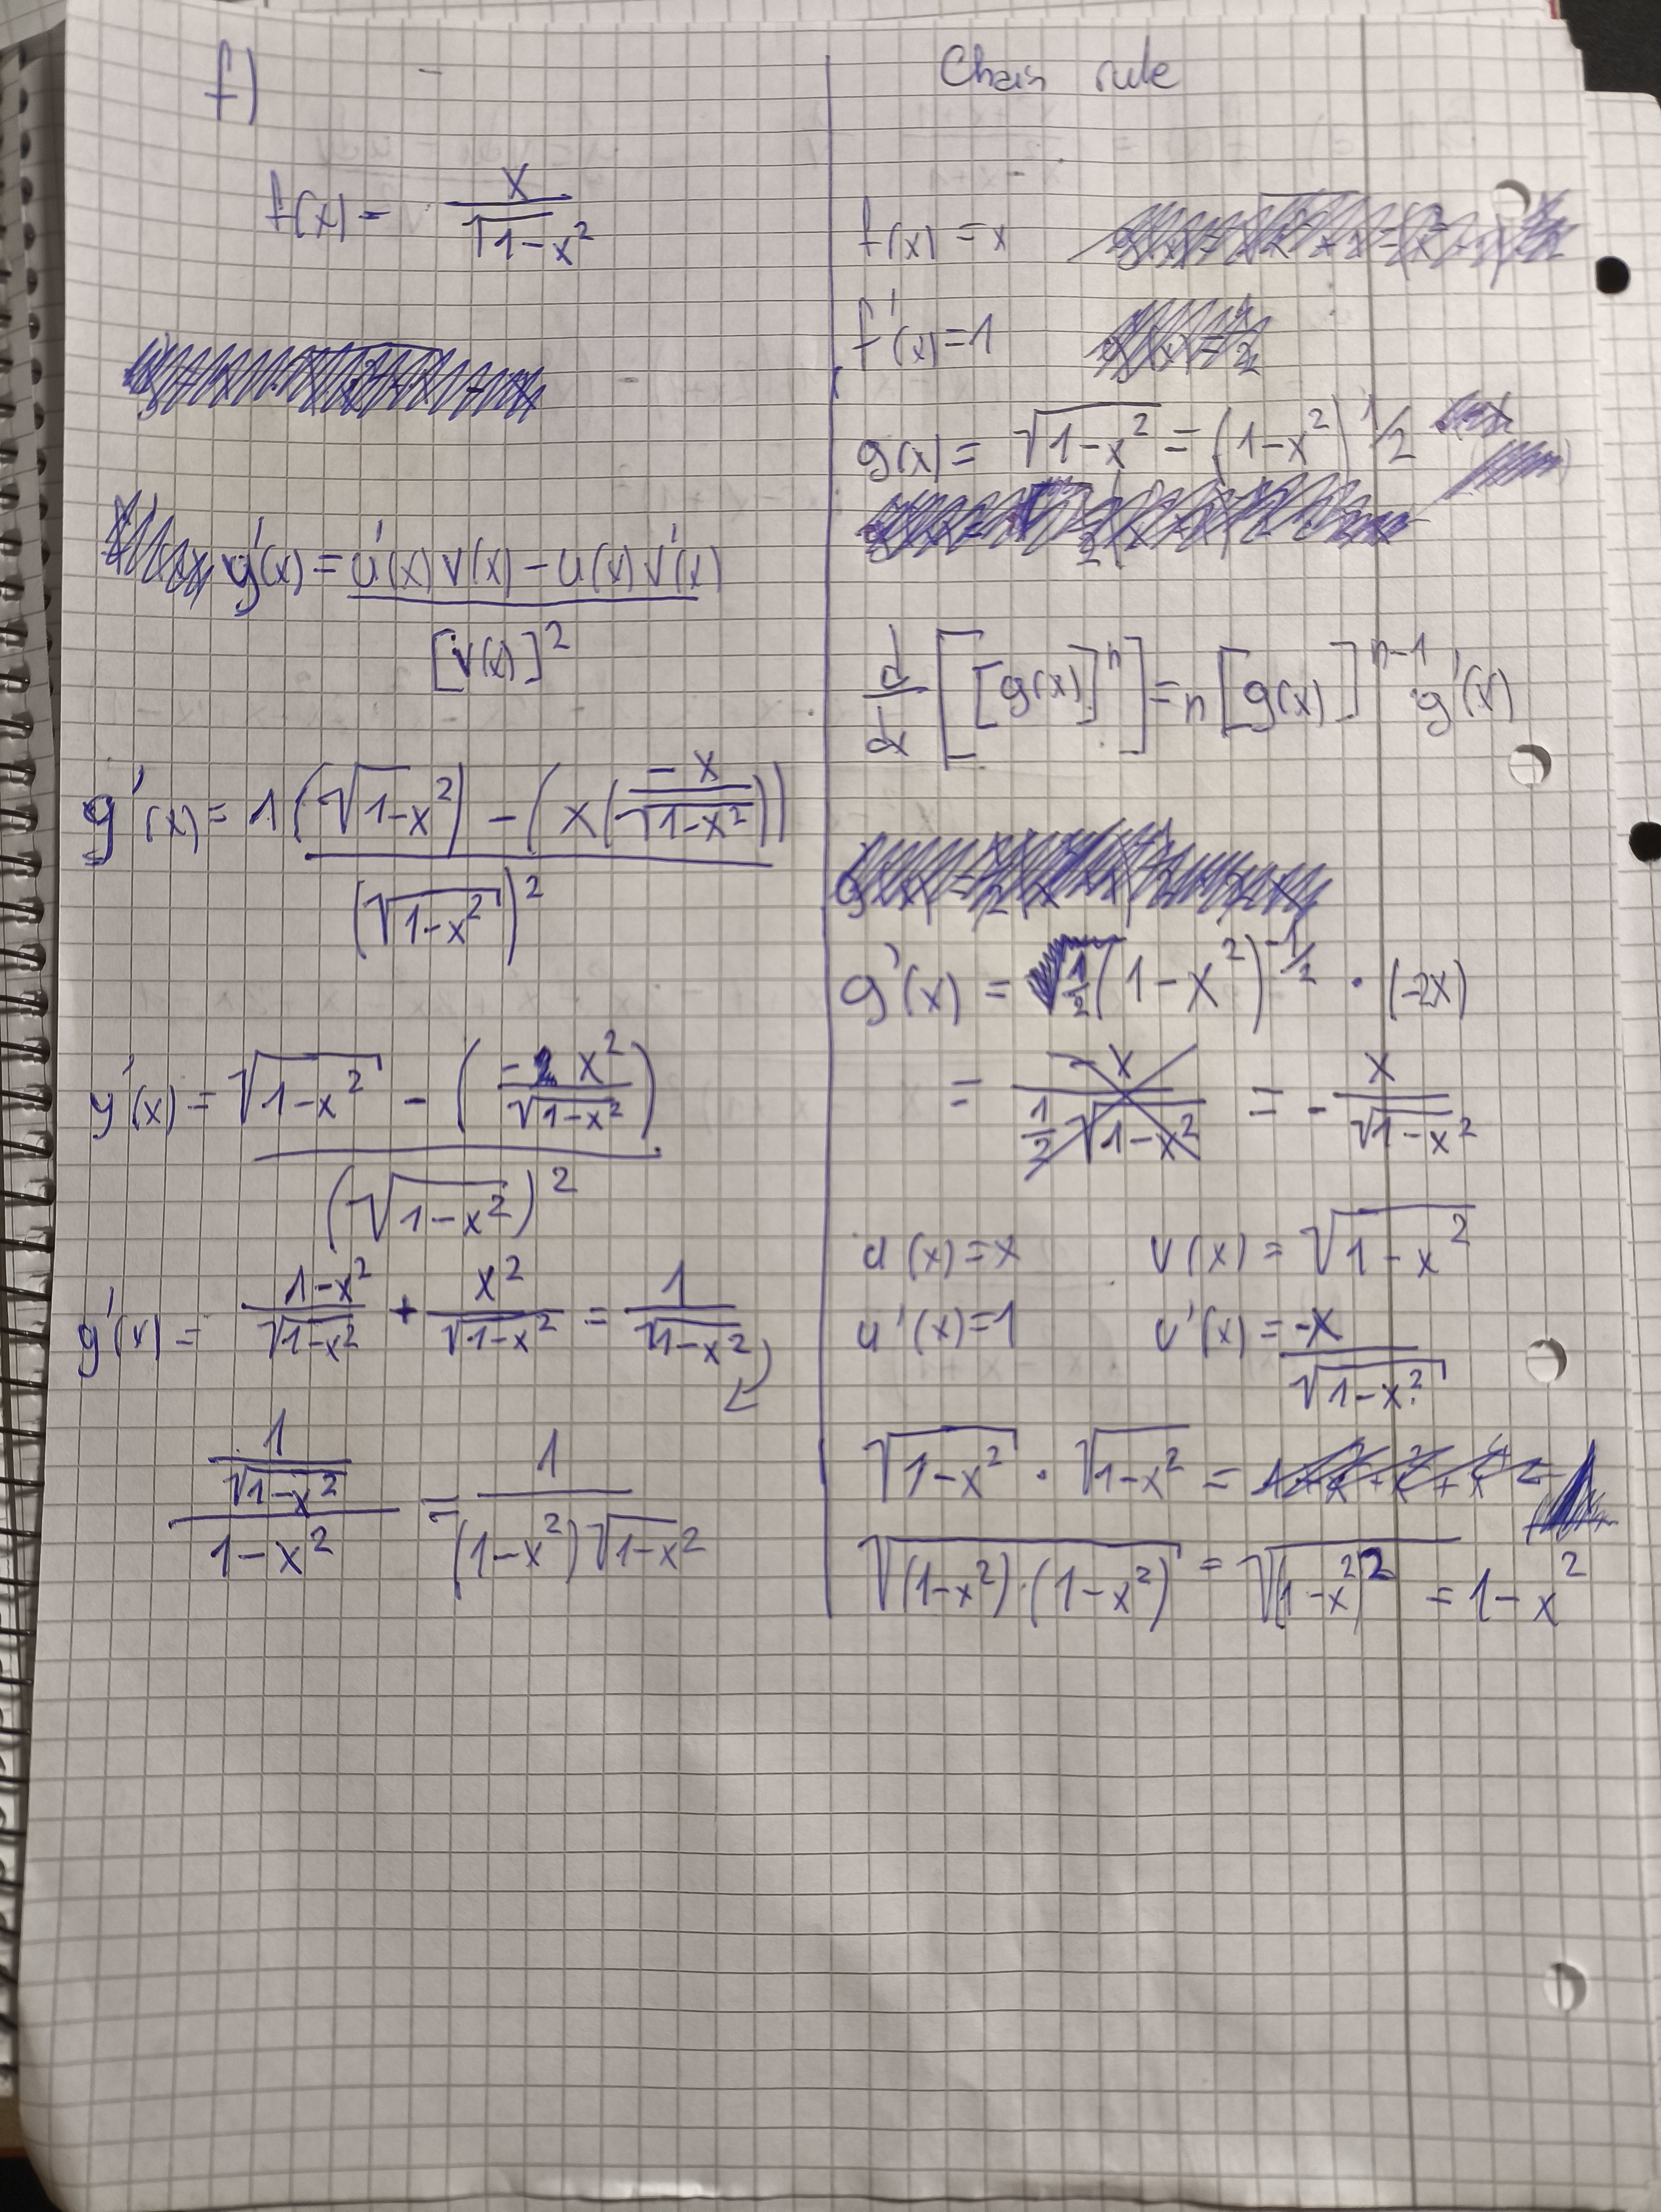 f)
f(x) = x / √1-x²
y'(x) = u'(x) v(x) - u(x) v'(x) / [v(x)]²
g'(x) = 1(√1-x²) - (x(-x / √1-x²)) / (√1-x²)²
y'(x) = √1-x² - (- x² / √1-x²) / (√1-x²)²
g'(x) = 1-x² / √1-x² + x² / √1-x² = 1 / √1-x²
1 / √1-x² / 1-x² = 1 / (1-x²)√1-x²
Chain rule
f(x) = x
f'(x) = 1
g(x) = √1-x² = (1-x²)^1/2
d/dx [[g(x)]^n] = n [g(x)]^n-1 g'(x)
g'(x) = 1/2 (1-x²)^-1/2 · (-2x)
= -x / 1/2 √1-x² = - x / √1-x²
u(x) = x v(x) = √1-x²
u'(x) = 1 v'(x) = -x / √1-x²
√1-x² · √1-x² =
√(1-x²)·(1-x²) = √(1-x²)² = 1-x²